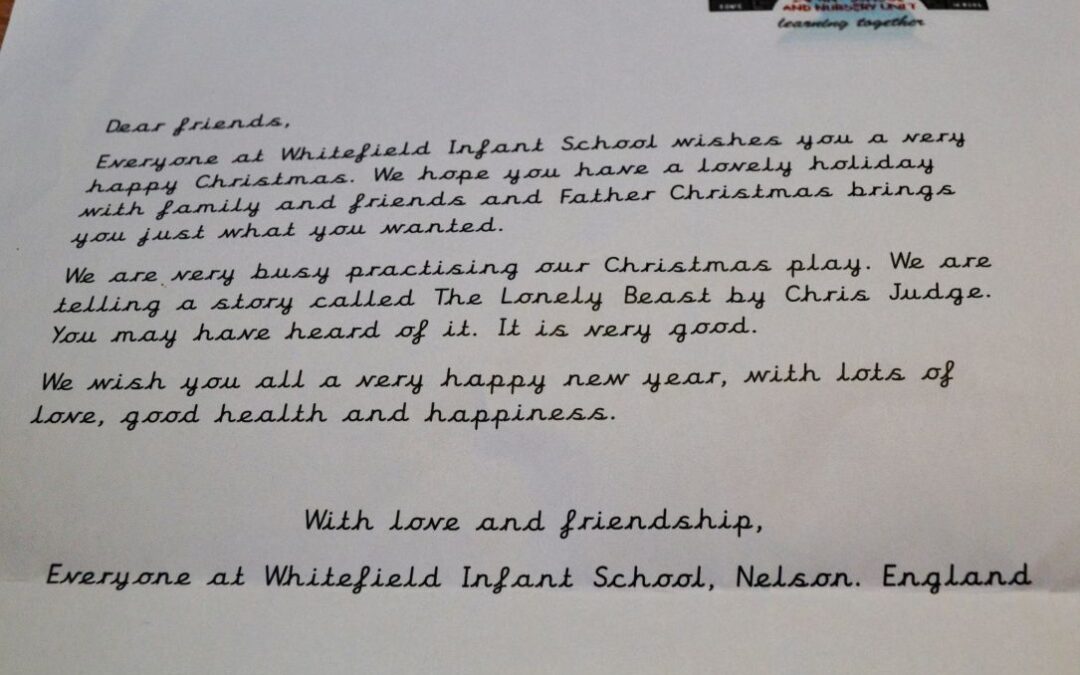 AND NURSERY UNIT
learning together
Dear friends,
Everyone at Whitefield Infant School wishes you a very
happy Christmas. We hope you have a lovely holiday
with family and friends and Father Christmas brings
you just what you wanted.
We are very busy practising our Christmas play. We are
telling a story called The Lonely Beast by Chris Judge.
You may have heard of it. It is very good.
We wish you all a very happy new year, with lots of
love, good health and happiness.
With love and friendship,
Everyone at Whitefield Infant School, Nelson. England